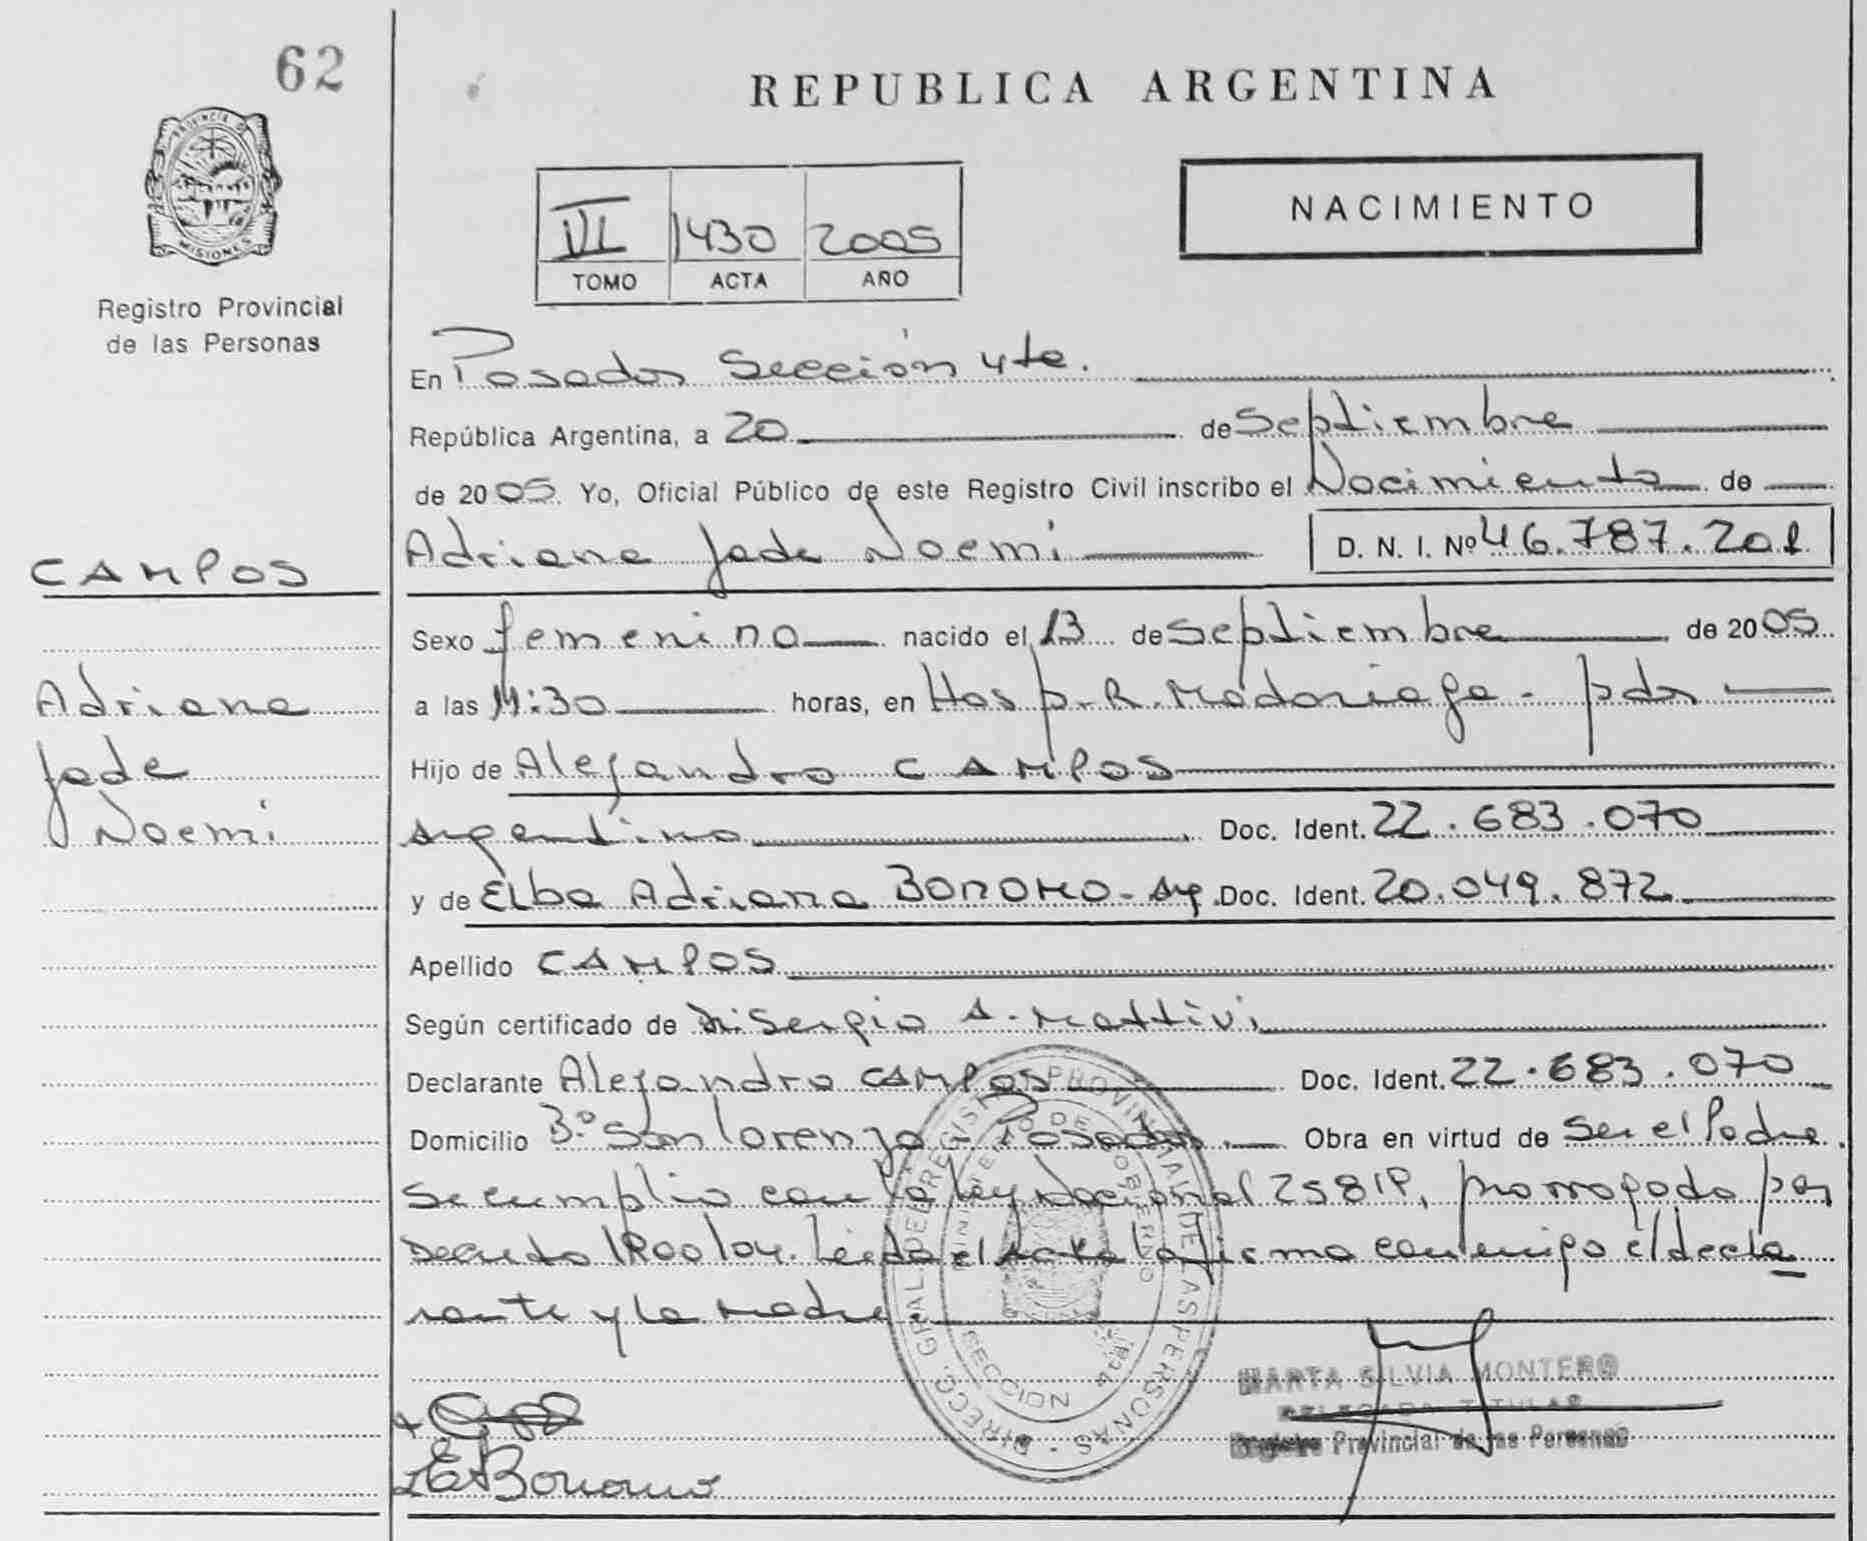 62
REPUBLICA ARGENTINA
PROVINCIA DE
MISIONES
Registro Provincial
de las Personas
VI 1430 2005
TOMO ACTA AÑO
NACIMIENTO
En Posadas Sección 4ta.
República Argentina, a 20 de Septiembre
de 2005 Yo, Oficial Público de este Registro Civil inscribo el Nacimiento de
Adriana Jade Noemi D. N. I. Nº 46.787.201
CAMPOS
Adriana
Jade
Noemi
Sexo femenino nacido el 13 de Septiembre de 2005
a las 11:30 horas, en Hosp. R. Madariaga - pdas
Hijo de Alejandro CAMPOS
argentino Doc. Ident. 22.683.070
y de Elba Adriana BONOMO - Arg. Doc. Ident. 20.049.872
Apellido CAMPOS
Según certificado de Dr. Sergio A. Mattivi
Declarante Alejandro CAMPOS Doc. Ident. 22.683.070
Domicilio Bº San Lorenzo - Posadas. Obra en virtud de ser el Padre.
Se cumplio con la ley Nacional 25819, prorrogado por
Decreto 1900/04. Leida el Acta la firma conmigo el decla
rante y la madre
DIRECC. GRAL DEL REGISTRO PROVINCIAL DE LAS PERSONAS
MINISTERIO DE GOBIERNO
SECCION 4ta
MARTA SILVIA MONTERO
DELEGADA TITULAR
Registro Provincial de las Personas
EABonomo